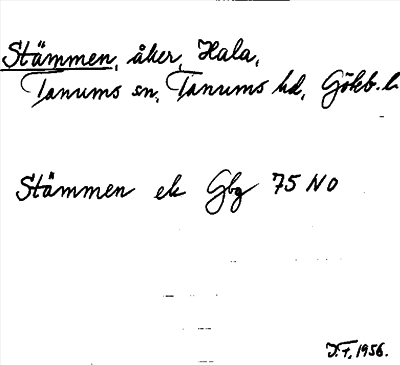 Stämmen, åker, Hala,
Tanums sn, Tanums hd, Götb. l.
Stämmen ek Gbg 75 NO
J.F. 1956.